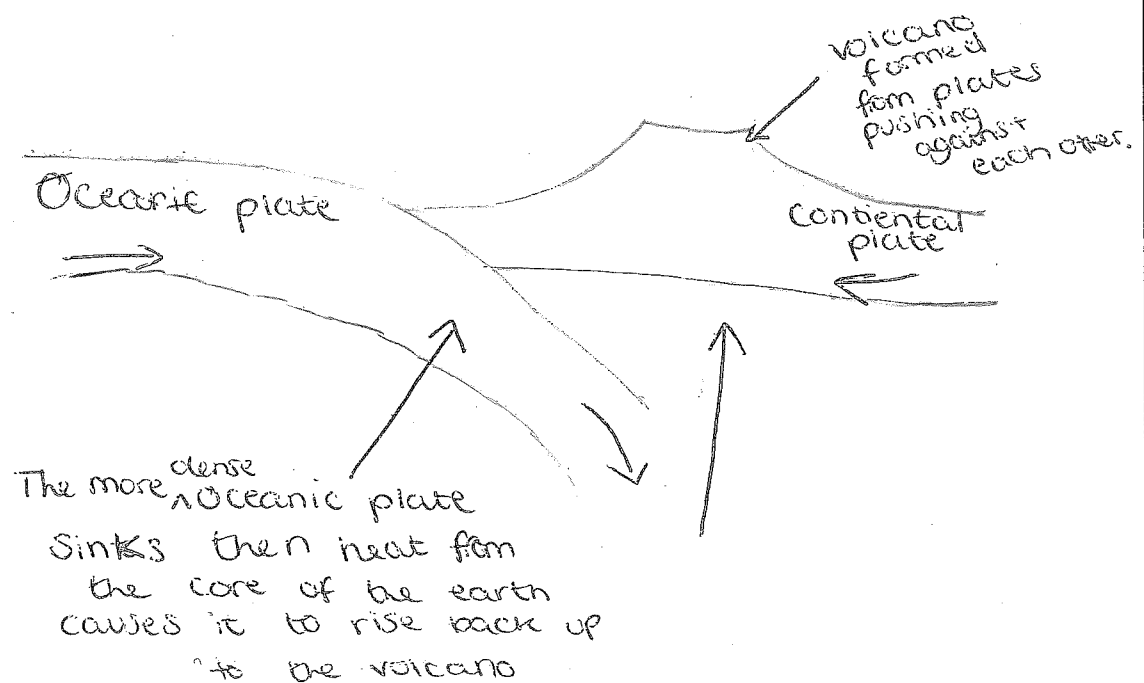 volcano
formed
from plates
pushing
against
each other.
Oceanic plate
Contiental
plate
The more dense Oceanic plate
sinks then heat from
the core of the earth
causes it to rise back up
to the volcano